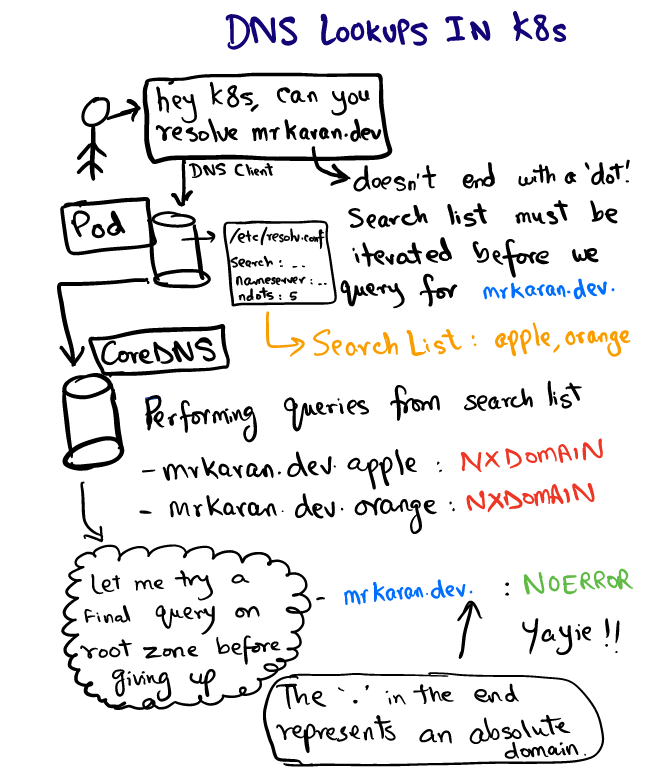 DNS LOOKUPS IN K8s
hey K8s, can you
resolve mrkaran.dev
DNS Client
doesn't end with a 'dot'!
Search list must be
iterated before we
query for mrkaran.dev.
Pod
/etc/resolv.conf
Search : ..
nameserver : ..
ndots : 5
Search List : apple, orange
CoreDNS
Performing queries from search list
- mrkaran.dev.apple : NXDOMAIN
- mrkaran.dev.orange : NXDOMAIN
Let me try a
final query on
root zone before
giving up
- mrkaran.dev. : NOERROR
Yayie !!
The '.' in the end
represents an absolute
domain.